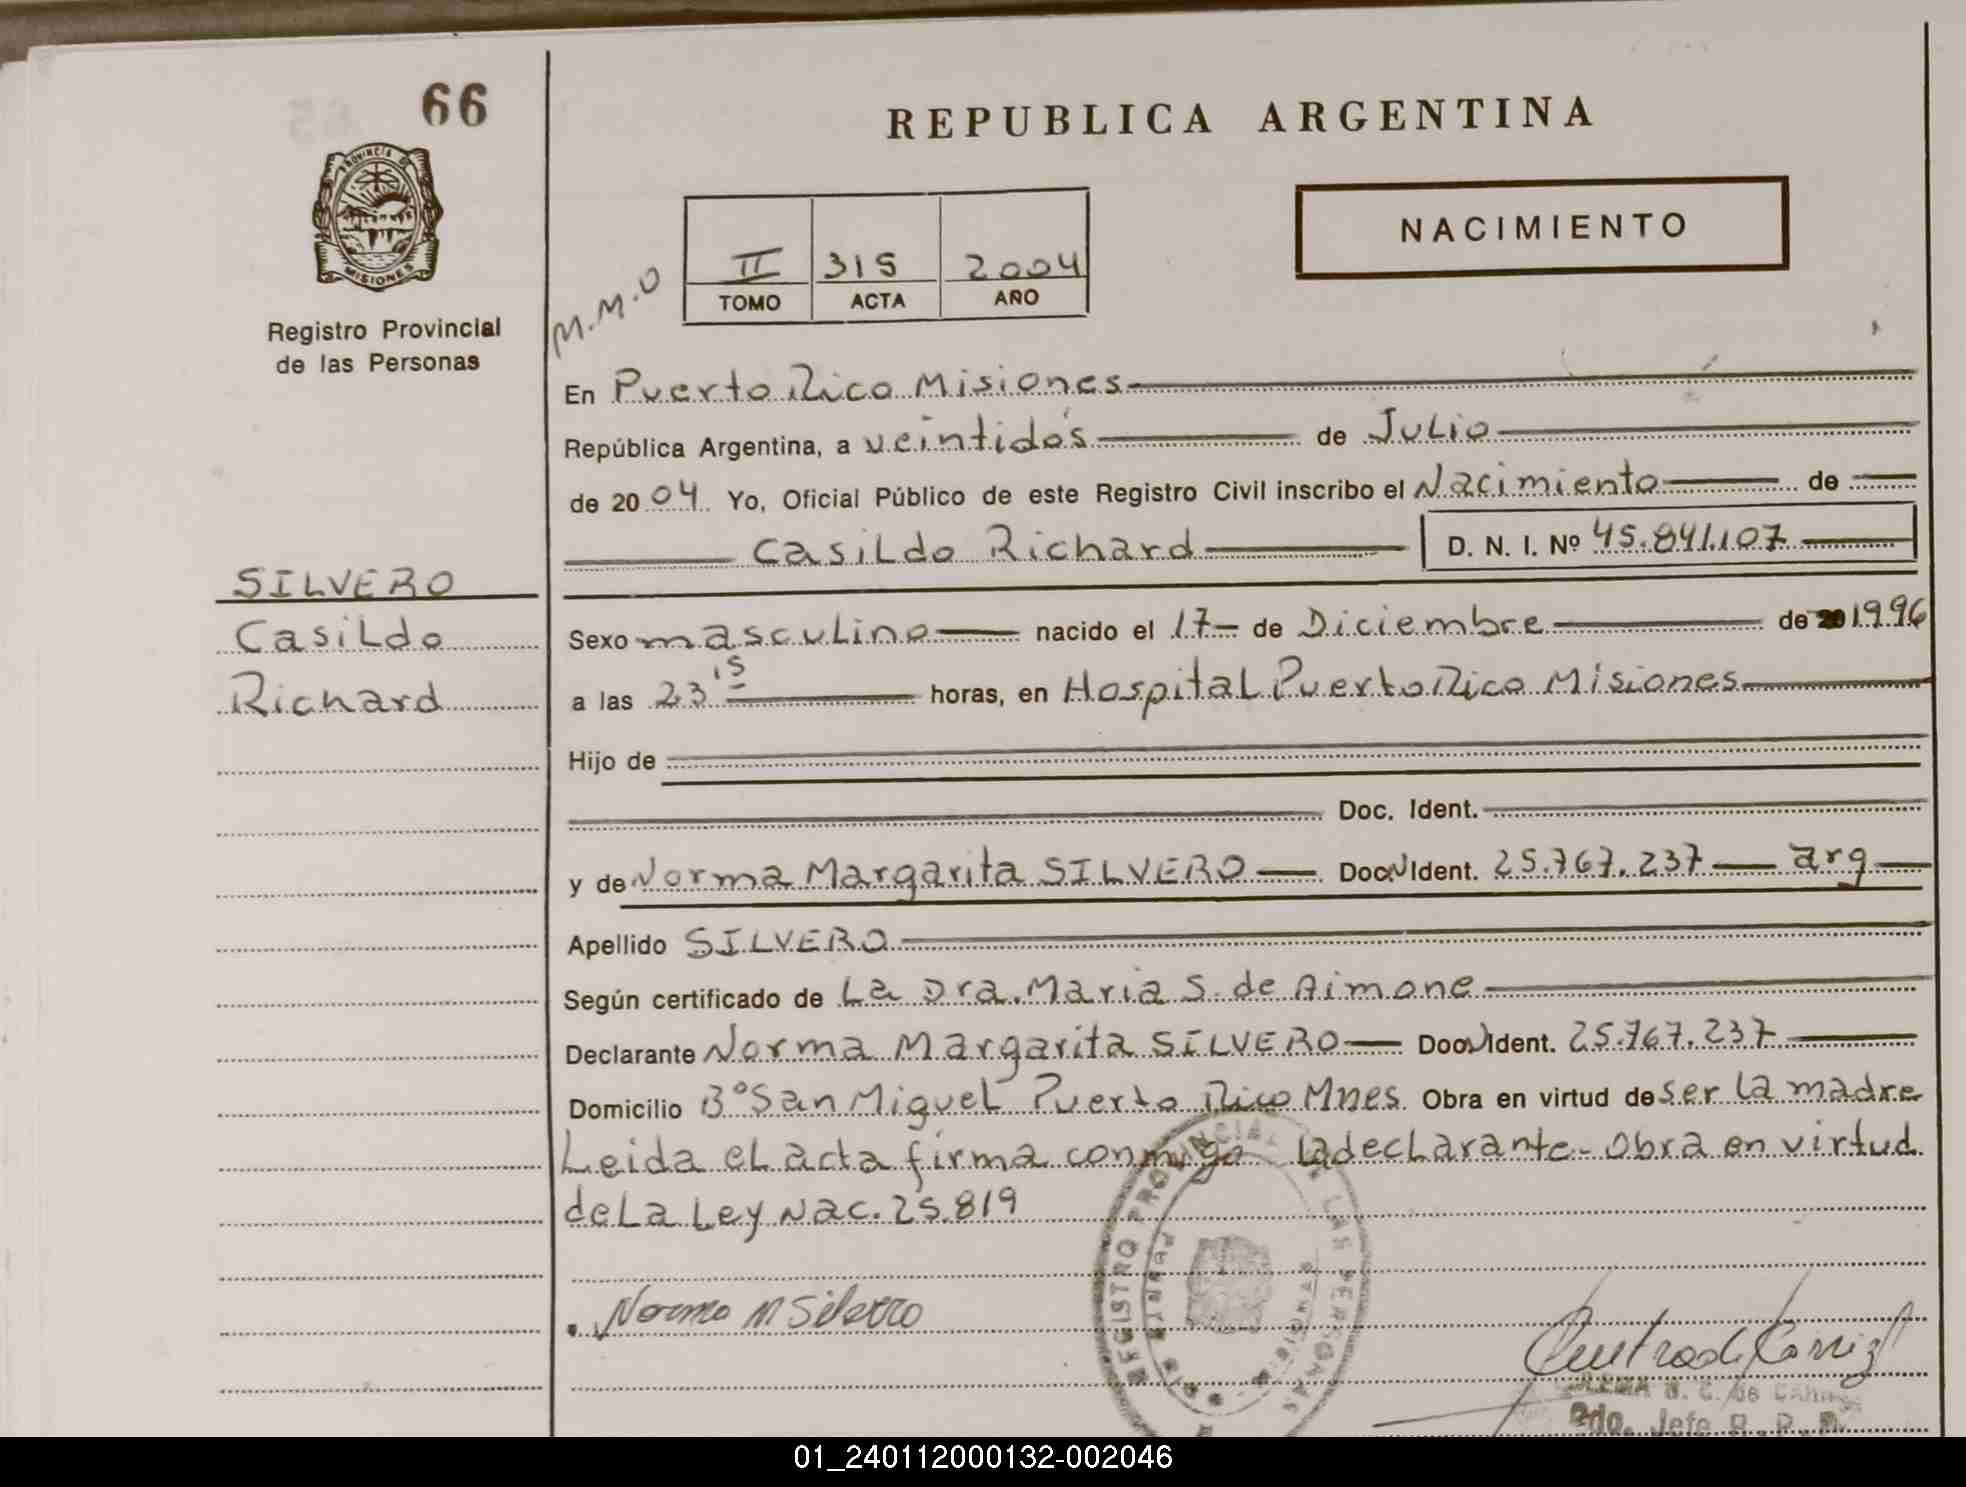 66
REPUBLICA ARGENTINA
PROVINCIA DE
MISIONES
Registro Provincial
de las Personas
NACIMIENTO
II 315 2004
TOMO ACTA AÑO
M.M.O
En Puerto Rico Misiones
República Argentina, a veintidós de Julio
de 2004. Yo, Oficial Público de este Registro Civil inscribo el Nacimiento de
Casildo Richard D. N. I. Nº 45.841.107
SILVERO
Casildo
Richard
Sexo masculino nacido el 17 de Diciembre de 20 1996
a las 23 15 horas, en Hospital Puerto Rico Misiones
Hijo de
Doc. Ident.
y de Norma Margarita SILVERO Doc. Ident. 25.767.237 arg
Apellido SILVERO
Según certificado de La Dra. Maria S. de Aimone
Declarante Norma Margarita SILVERO Doc. Ident. 25.767.237
Domicilio Bº San Miguel Puerto Rico Mnes. Obra en virtud de ser la madre
Leida el acta firma conmigo la declarante - Obra en virtud
de La Ley Nac. 25.819
REGISTRO PROVINCIAL DE LAS PERSONAS
Norma M Silvero
2do. Jefe R. P. P.
01_240112000132-002046